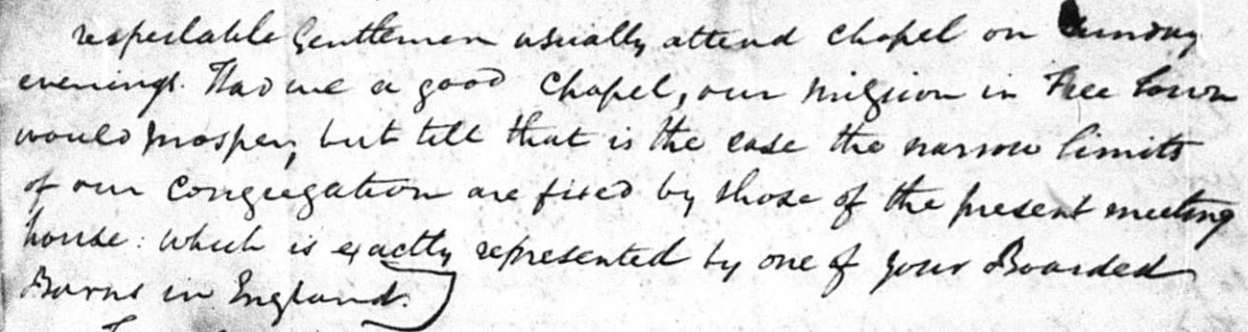 respectable Gentlemen usually attend chapel on Sunday
evenings. Had we a good Chapel, our mission in Free Town
would prosper, but till that is the case the narrow limits
of our Congregation are fixed by those of the present meeting
house: which is exactly represented by one of your Boarded
Barns in England.